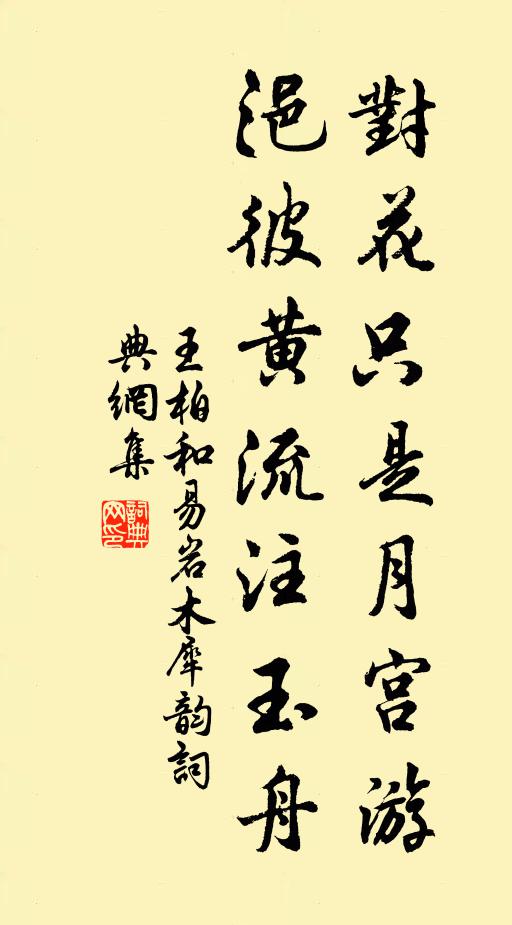 對花只是月宫游
浥彼黄流注玉舟
王柏和易岩木犀韵詞
典網集
詞典網印